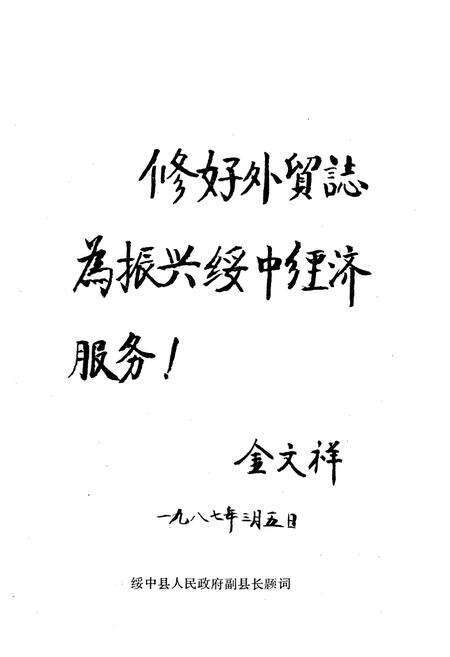 修好外貿誌
為振兴绥中经济
服务!
金文祥
一九八七年三月五日
绥中县人民政府副县长题词